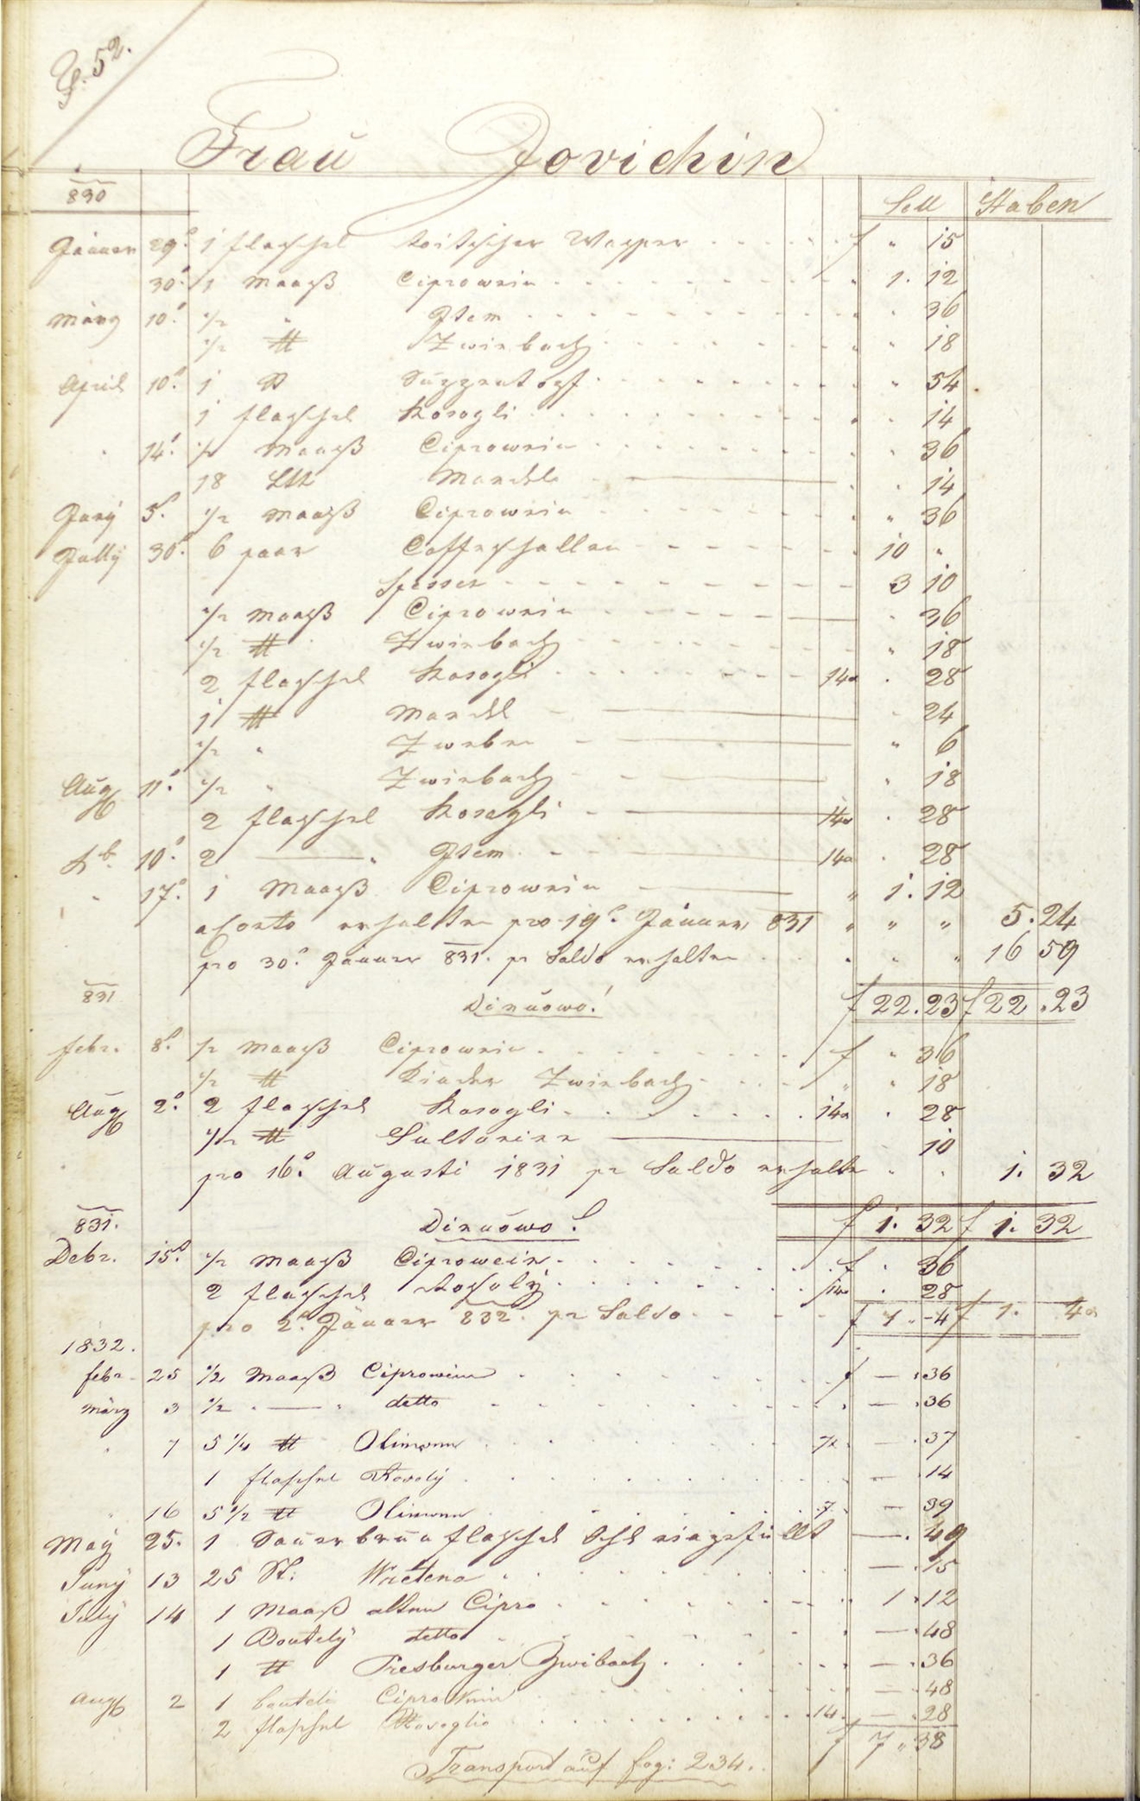 52.
Frau Jovichin
830 Soll Haben
Jänner 29. 1 flaschel Wasser f " 15
30. 1 Maaß Ciprowein 1. 12
März 10. 1/2 " Item 36
1/2 ℔ Zwiebach 18
April 10. 1 54
1 flaschel Rosogli 14
14. 1/2 Maaß Ciprowein 36
18 Lth Mandel 14
Juny 5. 1/2 Maaß Ciprowein " 36
Jully 30. 6 paar Caffeschallen 10 "
3 10
1/2 Maaß Ciprowein 36
1/2 ℔ Zwiebach " 18
2 flaschel Rosogli 14a 28
1 ℔ Mandel 24
1/2 " Zweben " 6
Aug 11. 1/2 " Zwiebach " 18
2 flaschel Rosogli 14a 28
10. 2 " Item 14a 28
" 17. 1 Maaß Ciprowein " 1. 12
a Conto erhalten pro 19. Jänner 831 " " " 5. 24
pro 30. Jänner 831. pr Saldo erhalten 16 59
831 Dinuowo! f 22. 23 f 22. 23
febr. 8. 1/2 Maaß Ciprowein f " 36
1/2 ℔ Kinder Zwiebach " 18
Aug 2. 2 flaschel Rosogli 14a 28
1/2 ℔ Sultanien 10
pro 16. Augusti 1831 pr Saldo erhalten 1. 32
831. Dinuowo! f 1. 32 f 1. 32
Debr. 15. 1/2 Maaß Ciprowein f 36
2 flaschel Rosoly 14a 28
pro 2. Jänner 832. pr Saldo f 1. -4 f 1. 4
1832.
febr. 25 1/2 Maaß Ciprowein f — 36
März 3 1/2 " — " detto — 36
" 7 5 1/4 ℔ Olimonn 7 — 37
1 flaschel Rosoly — 14
16 5 1/2 ℔ Olimonn 7 — 39
May 25. 1 Sauerbrun flaschel eingefüllt —. 49
Juny 13 25 St: Wretena — 15
July 14 1 Maaß alten Cipro 1. 12
1 Boutely detto — 48
1 ℔ Presburger Zwibach — 36
Aug 2 1 bouteli Ciprowein — 48
2 flaschel Rosoglio 14 — 28
f 7 " 38
Transport auf fog: 234.